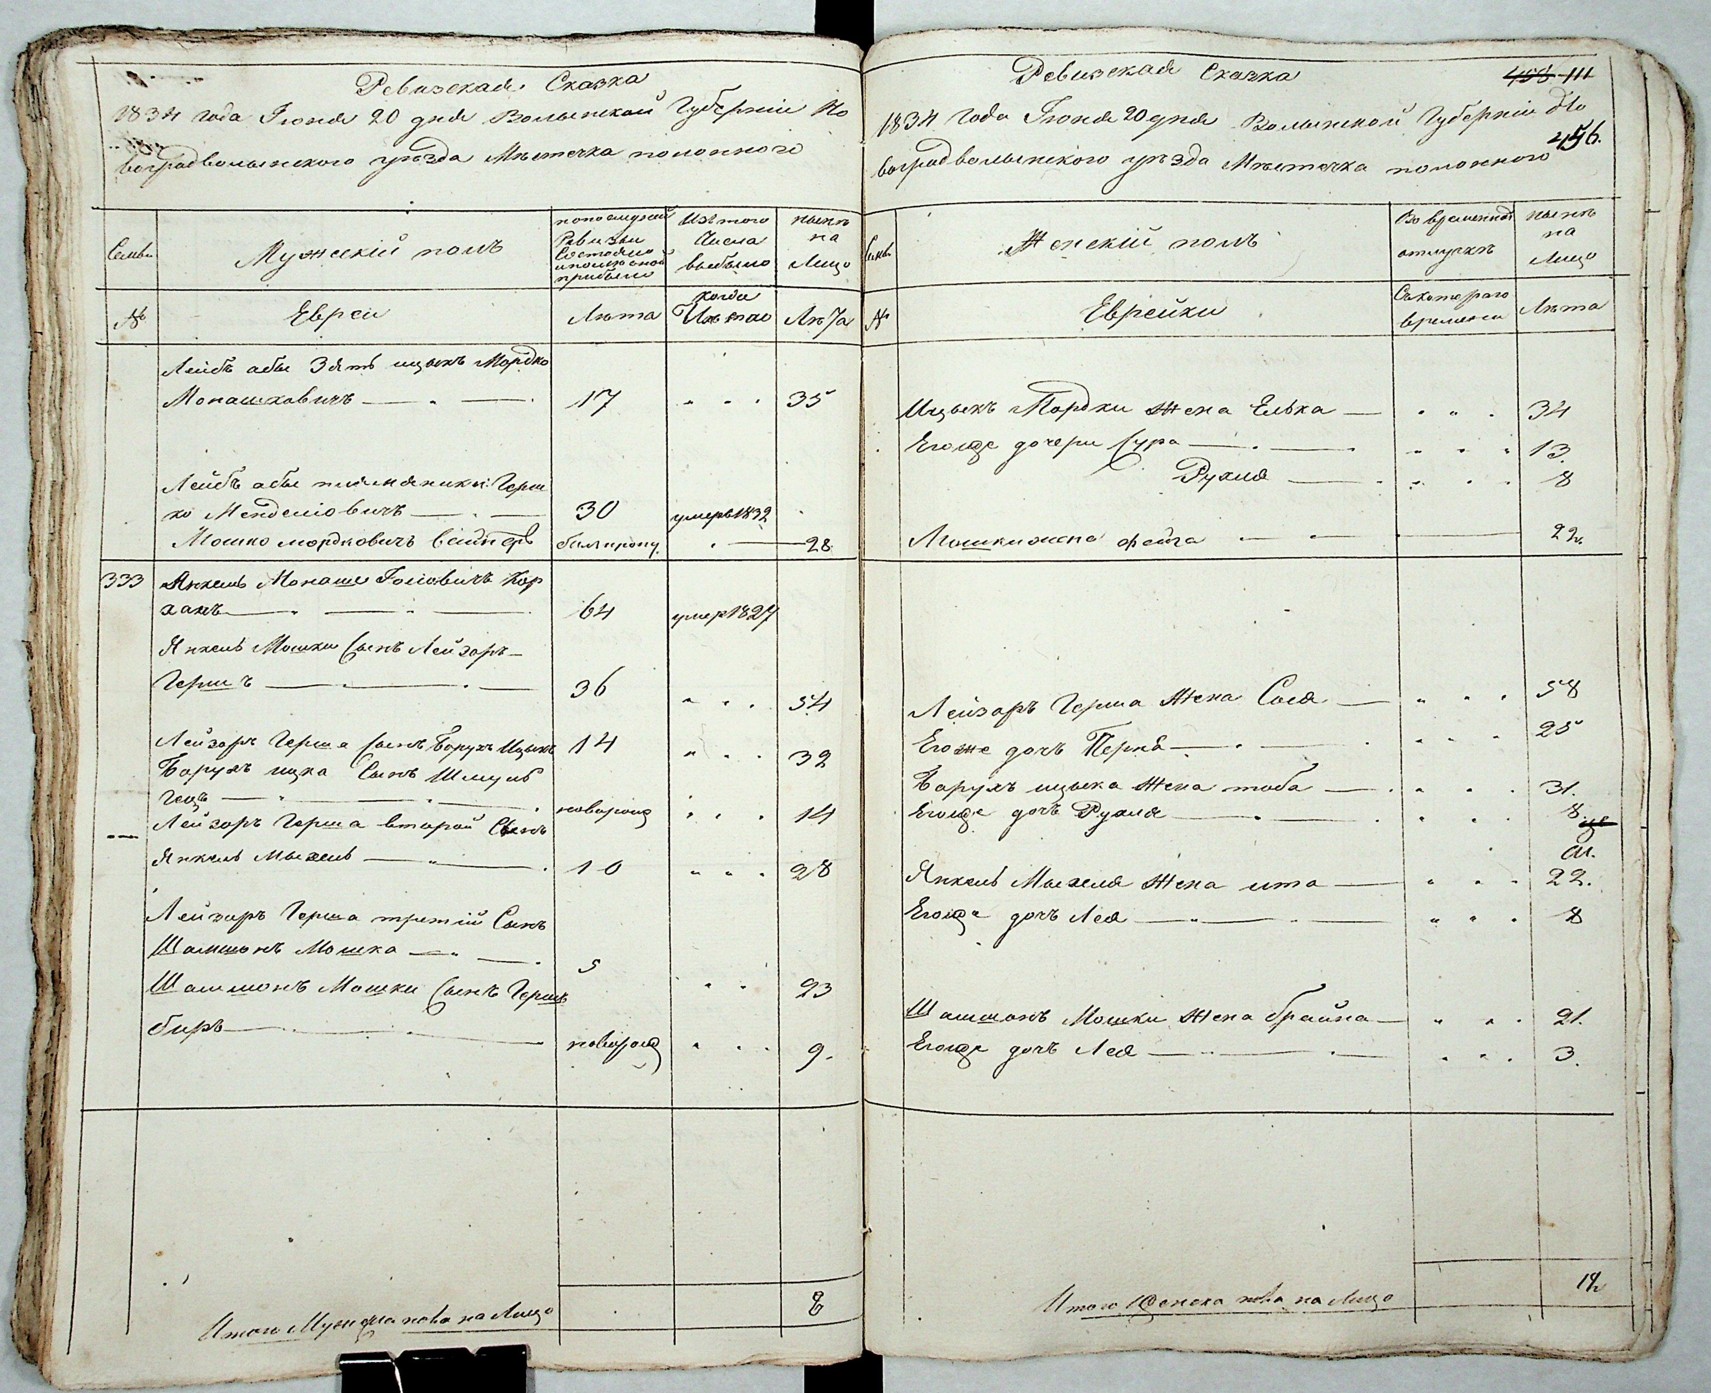 Ревизская Сказка
1834 года Іюня 20 дня Волынской Губерніи Но
воградволынского уѣзда Мѣстечка полонного
Семьи
Мужескій полъ
по последней
Ревизіи
Состояло
и после оной
прибыло
Изъ того
Числа
выбыло
нынѣ
на
Лицо
№
Евреи
Лѣта
когда
Имянно
Лѣта
Лейбъ абы Зять ицыкъ Мордко
Монашковичъ 17 35
Лейбъ абы племяники: Герш
ко Менделіовичъ 30 умеръ 1832
Мошко мордковичъ былъ пропу. 28
333 Янкель Монаше Іоліовичъ Кор
64 умер 1827
Янкель Мошки Сынъ Лейзоръ
Гершъ 36 54
Лейзоръ Герша Сынъ Борухъ Ицыкъ 14 32
Борухъ ицка Сынъ Шмуль
новорожд 14
Лейзоръ Герша второй Сынъ
Янкель Мыхель 10 28
Лейзоръ Герша третій Сынъ
Шамшонъ Мошка 5 23
Шамшонъ Мошки Сынъ Гершъ
беръ новорожд 9.
Итого Мужеска пола на Лицо 8
Ревизская Сказка
458 111
1834 Года Іюня 20 дня Волынской Губерніи Но
456.
воградволынского уѣзда Мѣстечка полонного
Семьи
Женскій полъ
Во временной
отлучкѣ
нынѣ
на
Лицо
№
Еврейки
Съ котораго
времени
Лѣта
Ицыкъ Мордки Жена Елька 34
Егожде дочери Сура 13.
Рухля 8
Мошки жена фейга 22.
Лейзоръ Герша Жена Сося 58
Егоже дочь Перля 25
Борухъ ицыка Жена тоба 31.
Егожде дочь Рухля 8.
Янкель Мыхеля Жена ита 22.
Егожде дочь Лея 8
Шамшонъ Мошки Жена брайна 21.
Егожде дочь Лея 3.
Итого Женска пола на Лицо 12